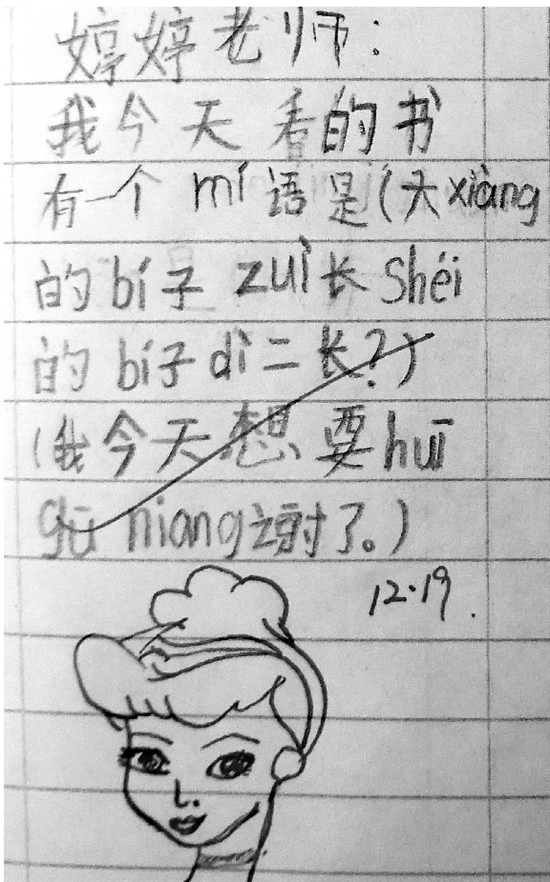 婷婷老师:
我今天看的书
有一个mí语是(大xiàng
的bí子zuì长shéi
的bí子dì二长?)
(我今天想要huī
gū niang谢了。)
12.19.